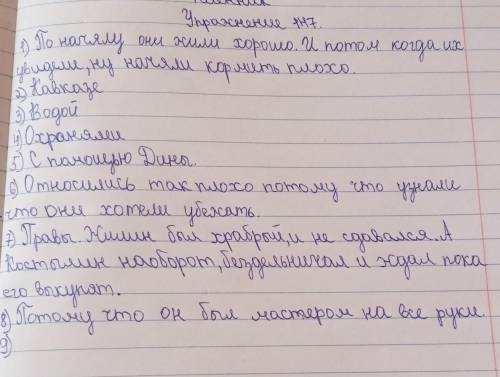 Упражнение 147.
1) По начялу они жили хорошо. И потом когда их
увидели, ну начяли кормить плохо.
2) Кавказе
3) Водой
4) Охранями
5) С помощью Дины.
6) Относились так плохо потому что узнали
что они хотели убежать.
7) Правы. Жилин был храбрый, и не сдовался. А
Костылин наоборот, бездельничал и ждал пока
его выкупят.
8) Потому что он был мастером на все руки.
9)